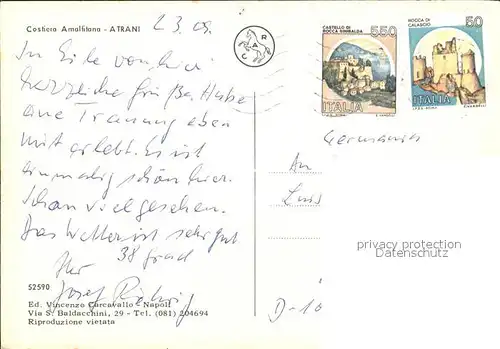 Costiera Amalfitana - ATRANI
23.09.
R
A
C
CASTELLO DI
ROCCA SINIBALDA
550
ITALIA
ROCCA DI
CALASCIO
50
ITALIA
In Eile von hier
herzliche Grüße. Habe
eine Trauung eben
miterlebt. Es ist
einmalig schön hier.
Schon viel gesehen.
Das Wetter ist sehr gut
38 Grad
Ihr
Josef
Germania
An
D-10
privacy protection
Datenschutz
52590
Ed. Vincenzo Carcavallo - Napoli
Via S. Baldacchini, 29 - Tel. (081) 204694
Riproduzione vietata